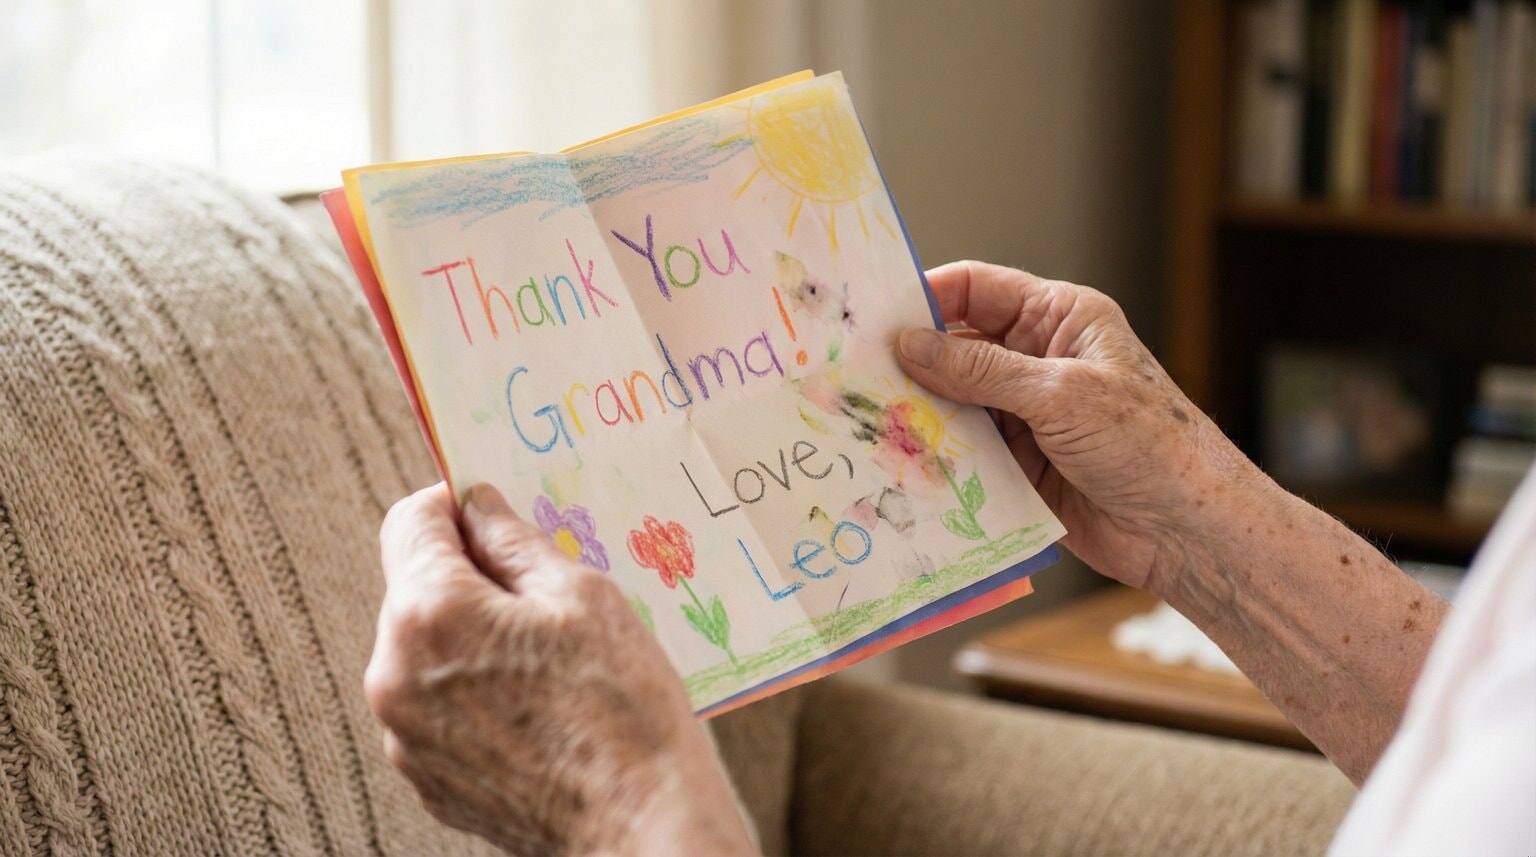 Thank You
Grandma!
Love,
Leo